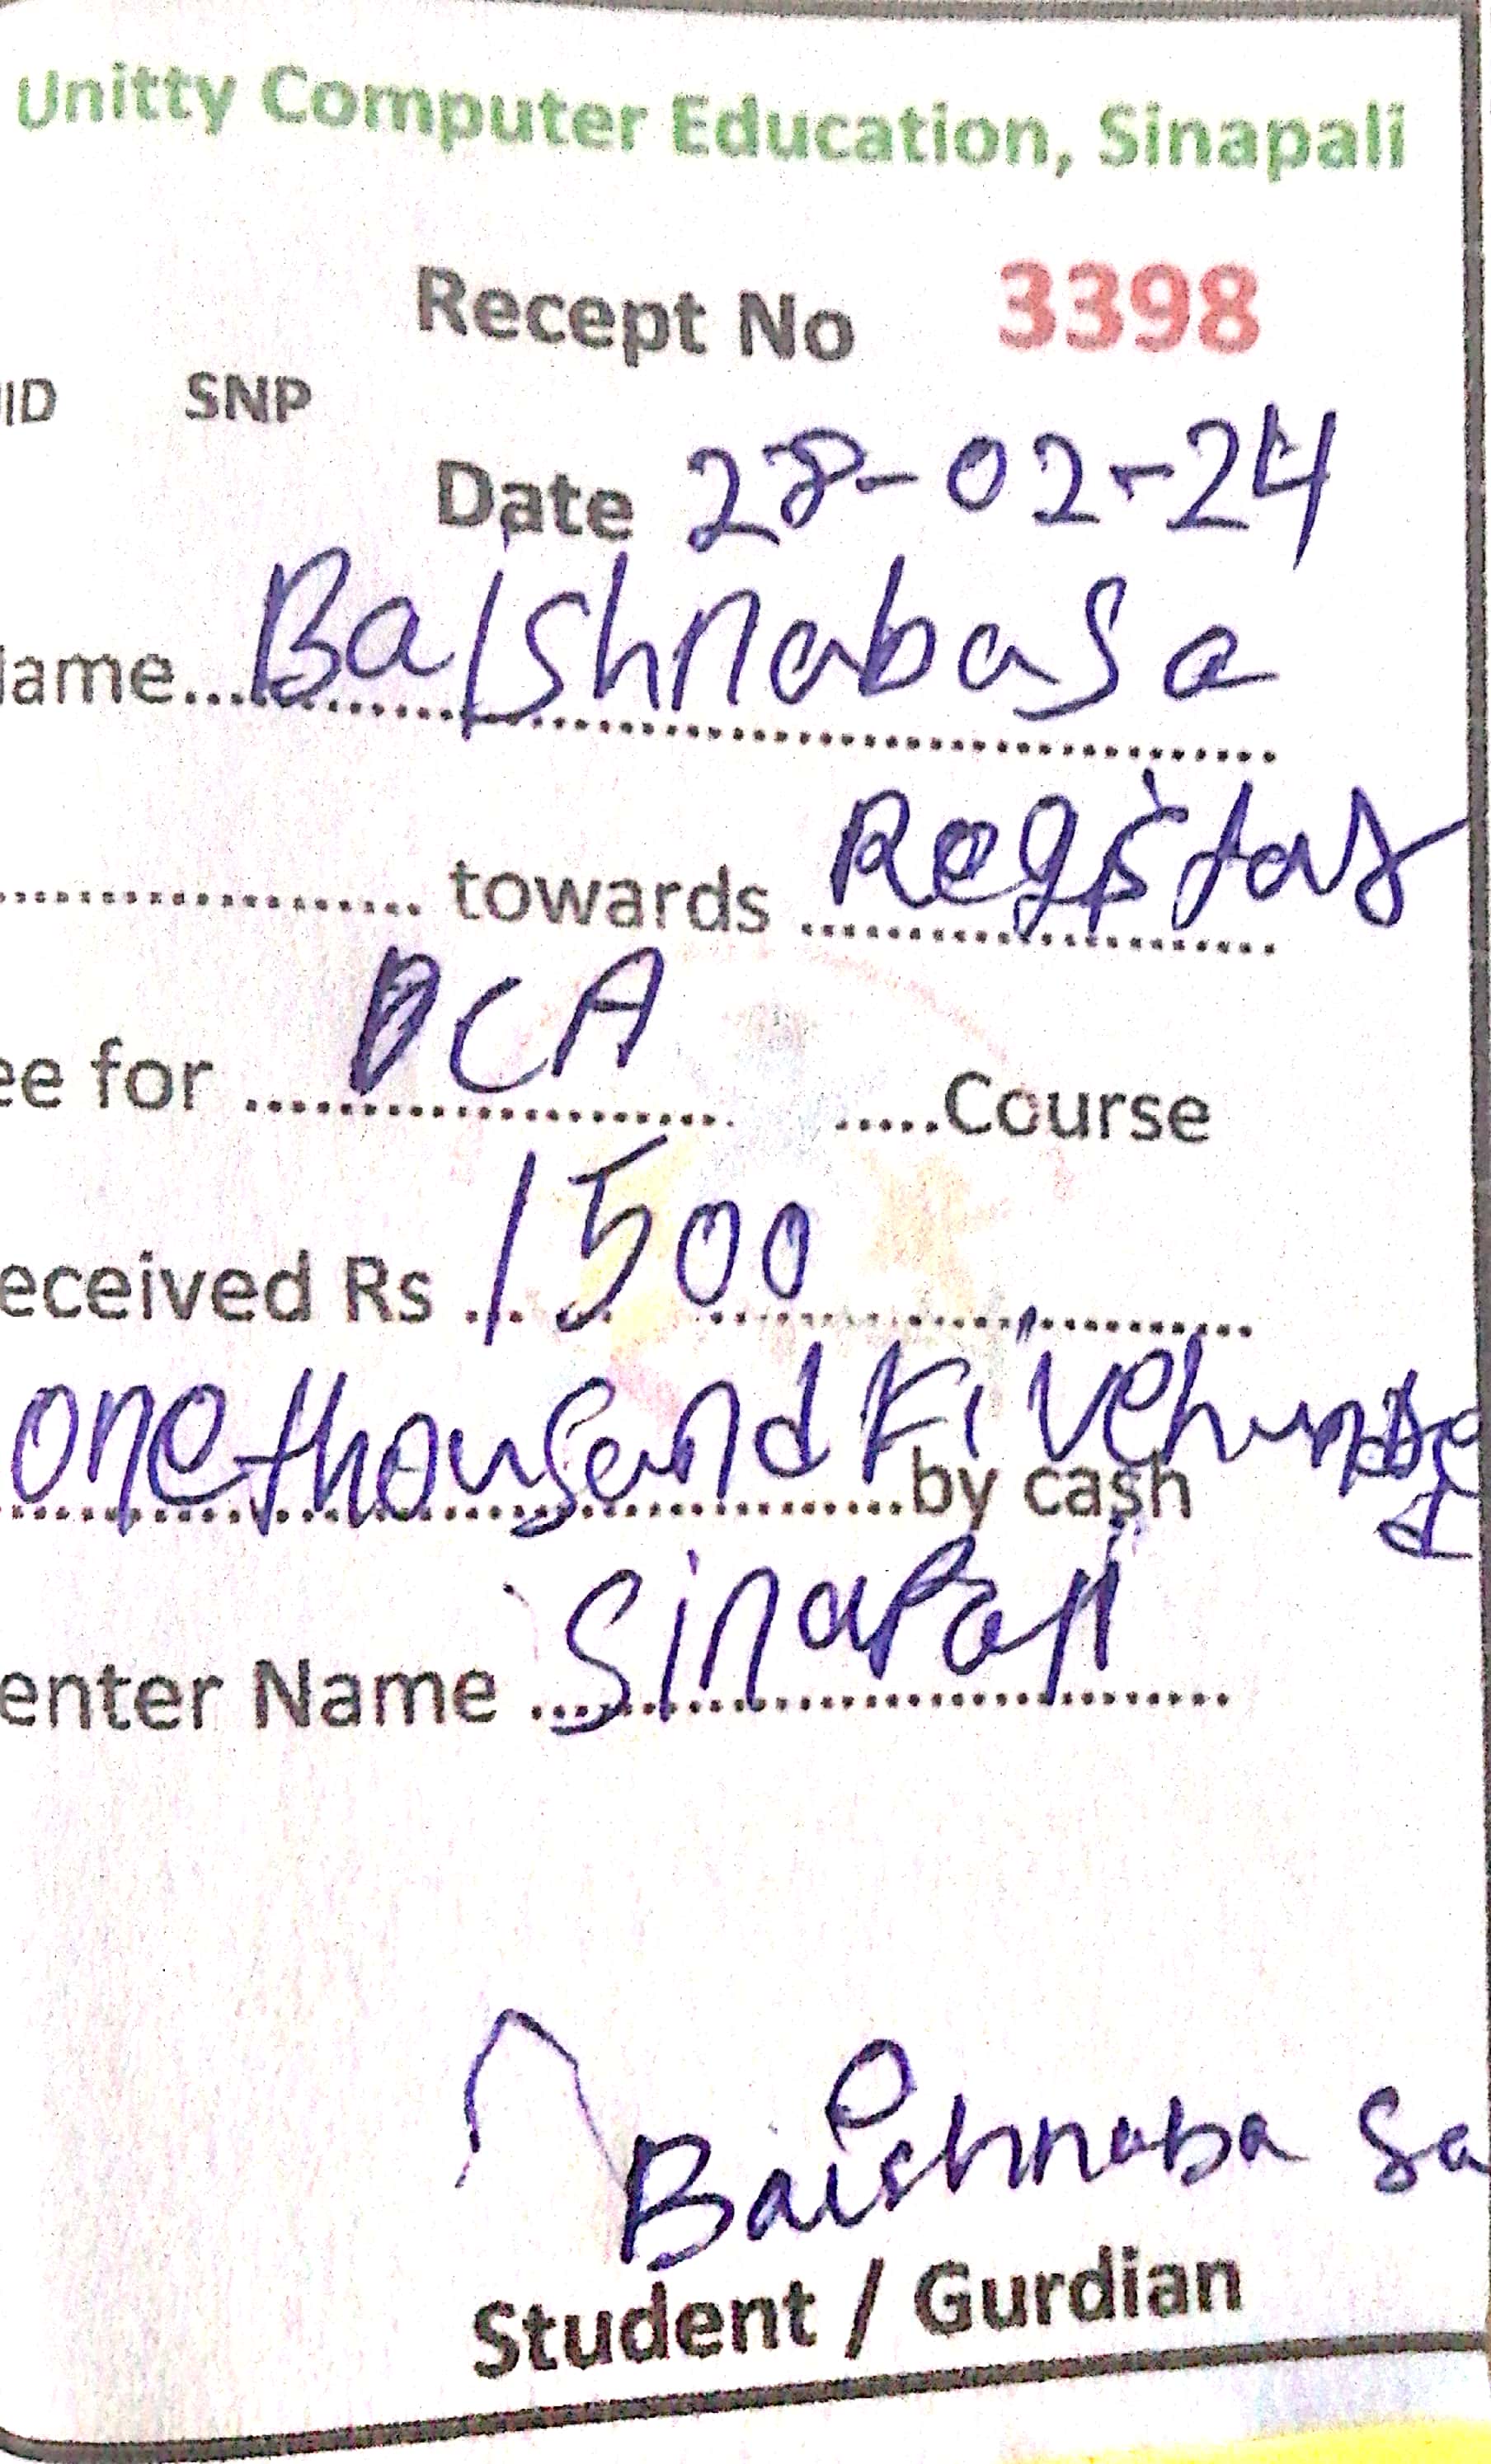 Unitty Computer Education, Sinapali
Recept No 3398
ID SNP
Date 28-02-24
ame... Baishnaba Sa
towards Registar
ee for DCA Course
eceived Rs 1500
one thousand Five hundred by cash
enter Name Sinapali
Baishnaba Sa
Student / Gurdian